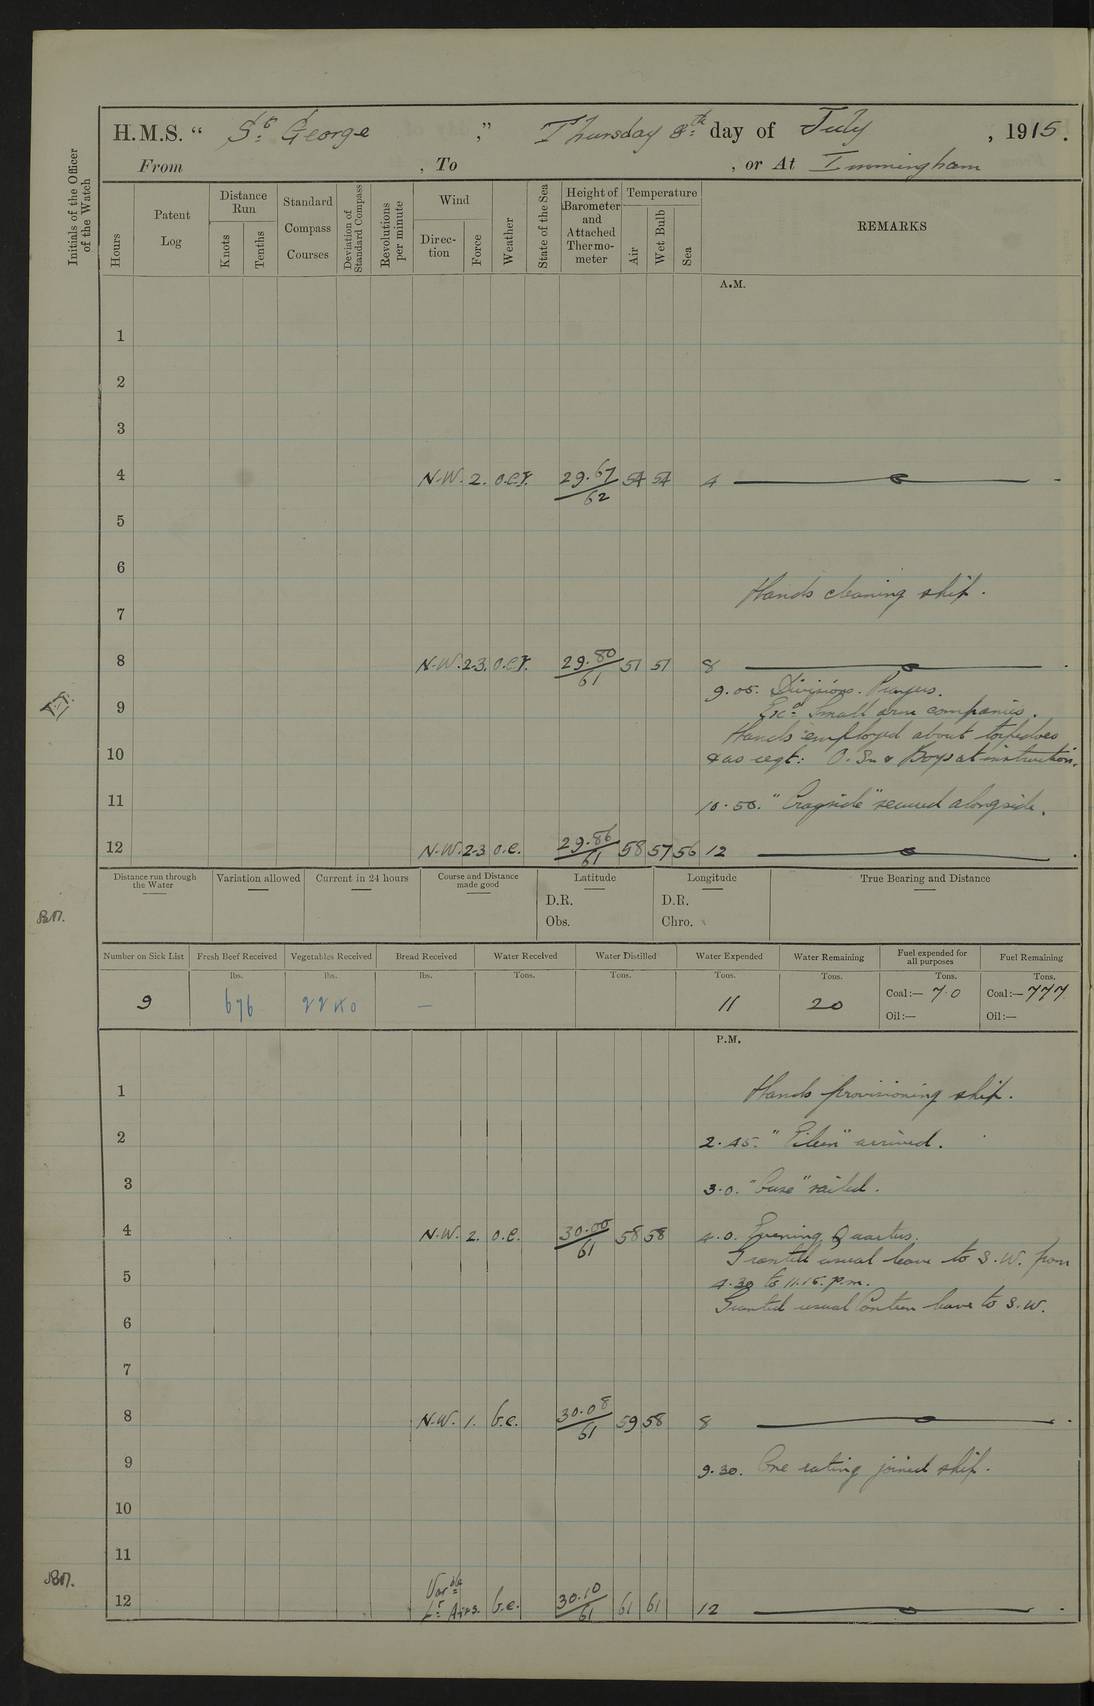 H.M.S. “ St. George ,” Thursday 8th day of July , 1915.
From , To , or At Immingham
Initials of the Officer of the Watch
Hours
Patent Log
Distance Run
Knots
Tenths
Standard Compass Courses
Deviation of Standard Compass
Revolutions per minute
Wind
Direction
Force
Weather
State of the Sea
Height of Barometer and Attached Thermometer
Temperature
Air
Wet Bulb
Sea
REMARKS
A.M.
1
2
3
4 N.W. 2. o.c.r. 29.67/62 54 54 4
5
6
Hands cleaning ship.
7
8 N.W. 2-3. o.c.r. 29.80/61 51 51 8
9.05. Divisions. Prayers.
9 Exd. Small arm companies.
Hands employed about torpedoes
10 & as reqt: O. Sn & Boys at instruction.
11 10.50. "Cragside" secured alongside.
12 N.W. 2-3 o.c. 29.86/61 58 57 56 12
Distance run through the Water
Variation allowed
Current in 24 hours
Course and Distance made good
Latitude
D.R.
Obs.
Longitude
D.R.
Chro.
True Bearing and Distance
Number on Sick List
Fresh Beef Received
Vegetables Received
Bread Received
Water Received
Water Distilled
Water Expended
Water Remaining
Fuel expended for all purposes
Fuel Remaining
lbs. lbs. lbs. Tons. Tons. Tons. Tons. Tons. Tons.
9 676 – 11 20 Coal:— 7.0 Coal:— 777
Oil:— Oil:—
P.M.
1 Hands provisioning ship.
2 2.45. "Eileen" arrived.
3 3.0. sailed.
4 N.W. 2. o.c. 30.00/61 58 58 4.0. Evening Quarters.
Granted usual leave to S.W. from
5 4.30 to 11.15. p.m.
Granted usual Canteen leave to S.W.
6
7
8 N.W. 1. b.c. 30.08/61 59 58 8
9 9.30. One rating joined ship.
10
11
12 Varble Lt Airs. b.c. 30.10/61 61 61 12